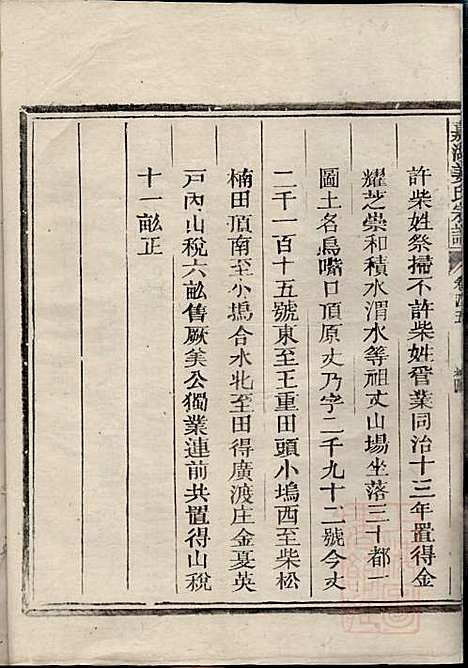 嘉湖姜氏宗譜
許柴姓祭掃不許柴姓管業同治十三年置得金
耀芝崇和積水渭水等祖丈山場坐落三十都一
圖土名烏嘴口頂原丈乃字二千九十二號今丈
二千一百十五號東至王重田頭小塢西至柴松
楠田頂南至小塢合水北至田得廣渡庄金夏英
戸內山稅六畆售厥美公獨業連前共置得山稅
十一畆正